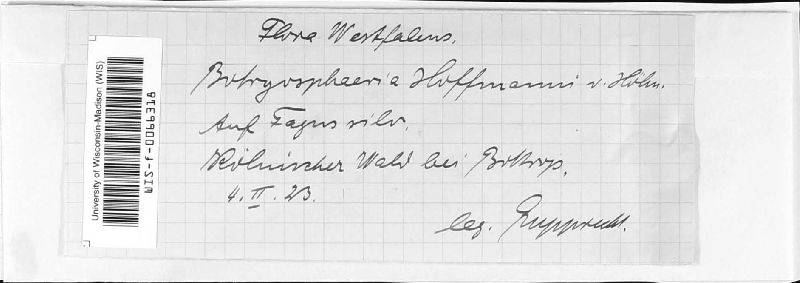 Flora Westfalens.
Botryosphaeria Hoffmanni v. Höhn.
Auf Fagus silv.
Kölnischer Wald bei Bottrop.
4. II. 23.
leg. Rupprecht.
University of Wisconsin-Madison (WIS)
WIS-f-0066318